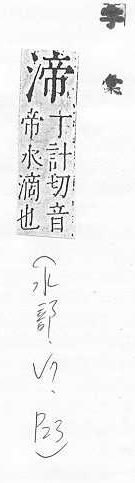 渧
丁計切音
帝水滴也
(水部. V7. P23)